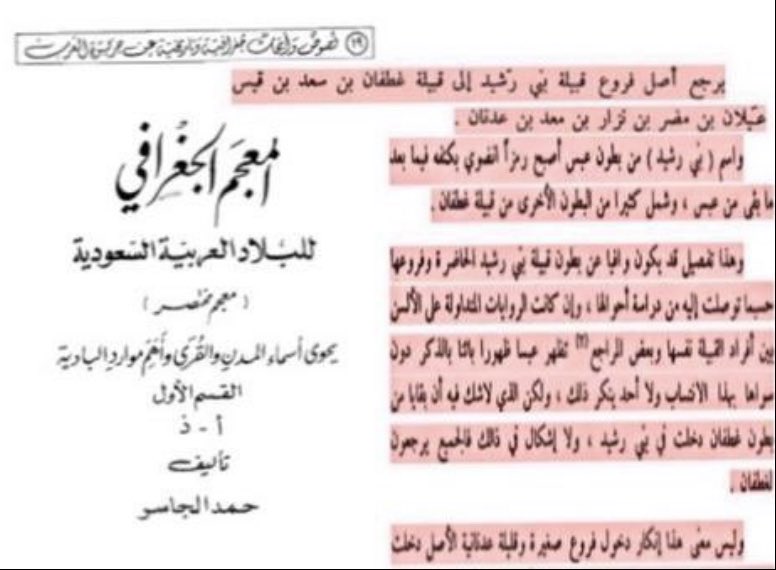 (١٩) نصوص وأبحاث جغرافية وتاريخية عن جزيرة العرب
المعجم الجغرافي
للبلاد العربية السعودية
( معجم مختصر )
يحوى أسماء المدن والقرى وأهم موارد البادية
القسم الأول
أ - ذ
تأليف
حمد الجاسر
يرجع أصل فروع قبيلة بني رشيد إلى قبيلة غطفان بن سعد بن قيس
عيلان بن مضر بن نزار بن معد بن عدنان .
واسم ( بني رشيد ) من بطون عبس أصبح رمزاً انضوي بكنفه فيما بعد
ما بقى من عبس ، وشمل كثيرا من البطون الأخرى من قبيلة غطفان .
وهذا تفصيل قد يكون وافيا عن بطون قبيلة بني رشيد الحاضرة وفروعها
حسبما توصلت إليه من دراسة أحوالها ، وإن كانت الروايات المتداولة على الألسن
بين أفراد القبيلة نفسها وبعض المراجع (٢) تظهر عبسا ظهورا باتا بالذكر دون
سواها بهذا الانتساب ولا أحد ينكر ذلك ، ولكن الذي لاشك فيه أن بقايا من
بطون غطفان دخلت في بني رشيد ، ولا إشكال في ذالك فالجميع يرجعون
لغطفان .
وليس معنى هذا إنكار دخول فروع صغيرة وقليلة عدنانية الأصل دخلت